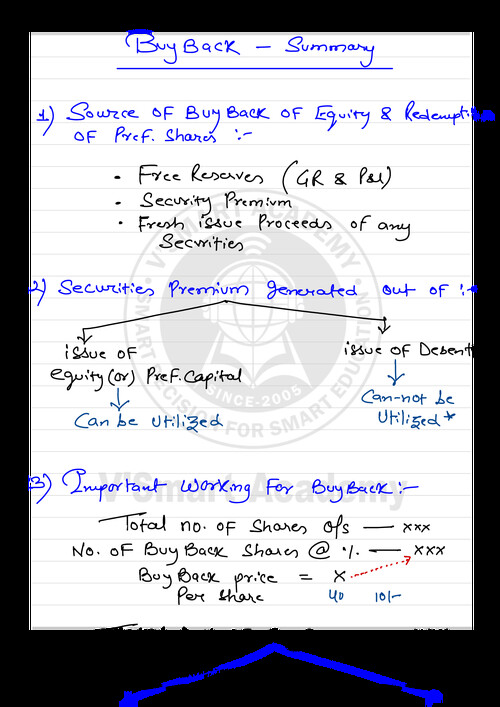 Buy Back - Summary
1) Source of Buy Back of Equity & Redemption
of Pref. Shares :-
• Free Reserves (GR & P&L)
• Security Premium
• Fresh issue Proceeds of any
Securities
2) Securities Premium generated out of :-
issue of
equity (or) Pref. Capital
Can be Utilized
issue of Debent
Can-not be
Utilized *
3) Important Working For Buy Back :-
Total no. of Shares o/s — xxx
No. of Buy Back Shares @ % — xxx
Buy Back price = x
Per Share 40 10/-
V'SMART ACADEMY
SMART DECISION FOR SMART EDUCATION
SINCE-2005
V'Smart Academy